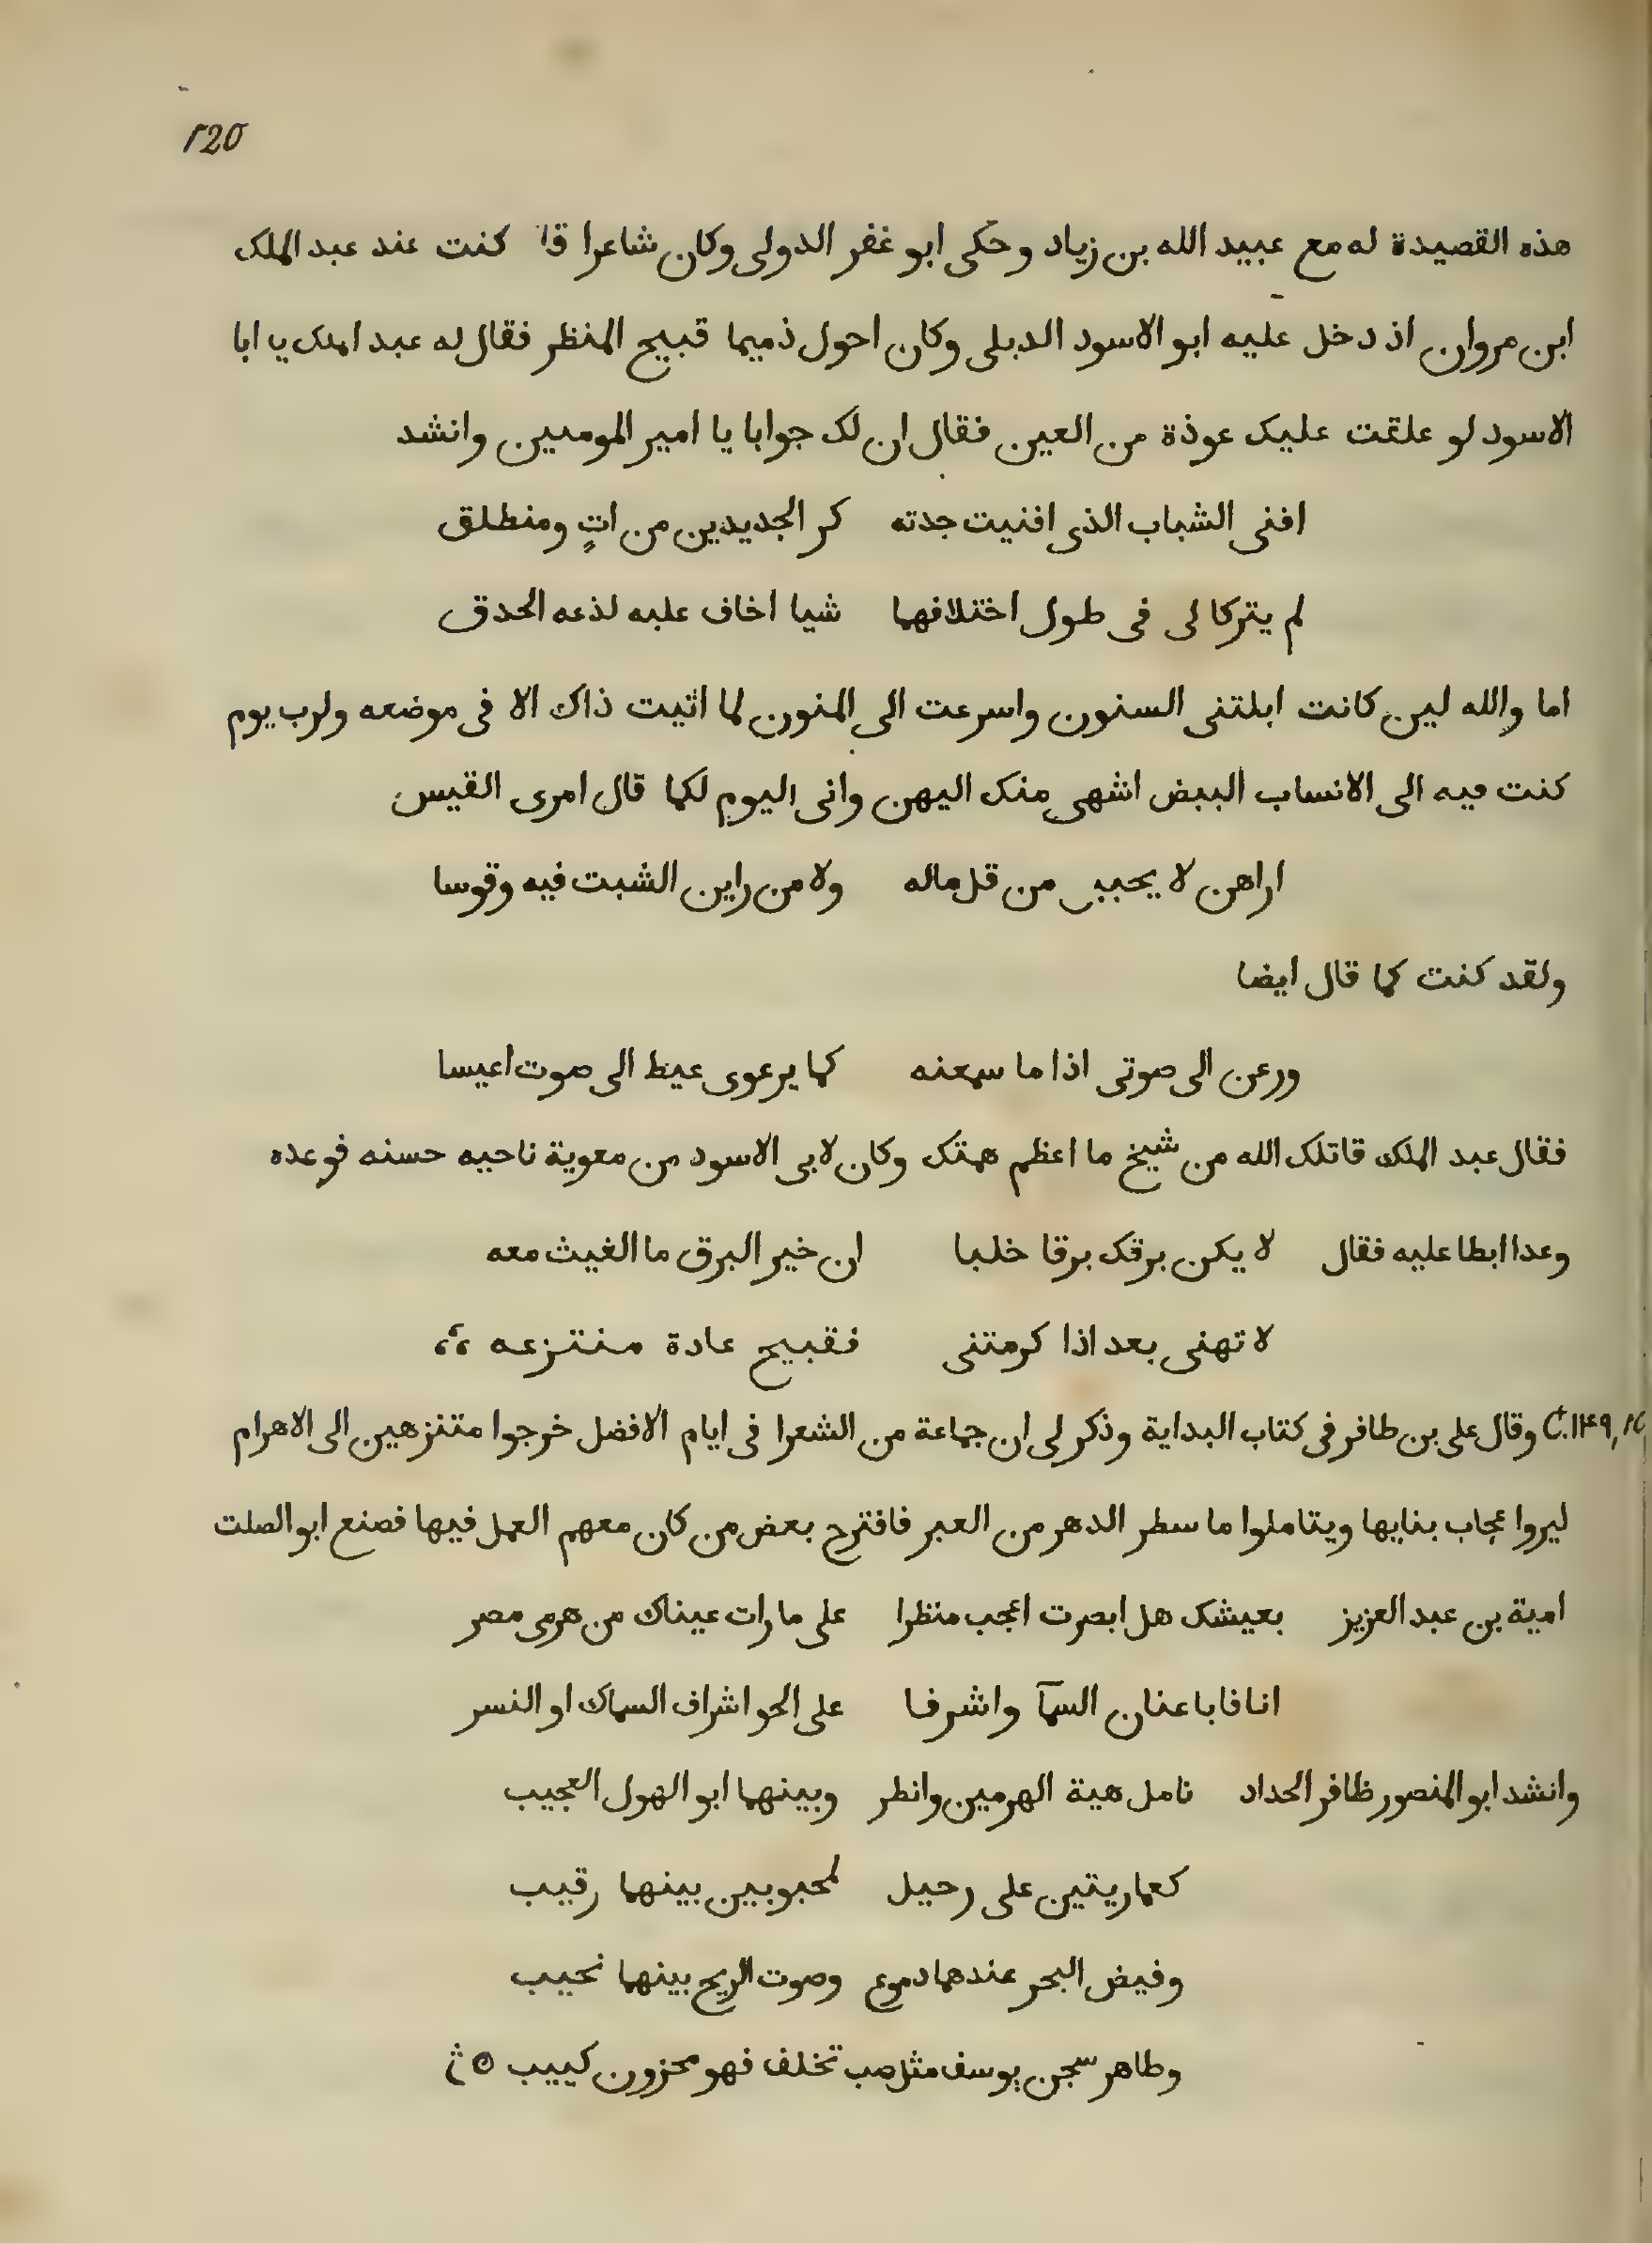 ١2٥
هذه القصيدة له مع عبيد الله بن زياد وحكى ابو غفر الدولى وكان شاعرا قا كنت عند عبد الملك
ابن مروان اذ دخل عليه ابو الاسود الدبلى وكان احول ذميما قبيح المنظر فقال له عبد الملك يا ابا
الاسود لو علقت عليك عوذة من العين فقال ان لك جوابا يا امير المومىين وانشد
افنى الشباب الذى افنيت جدته كر الجديدين من اتٍ ومنطلق
لم يتركا لى فى طول اختلافهما شيا اخاف علبه لذعه الحدق
اما والله لين كانت ابلتنى السنون واسرعت الى المنون لما اثيت ذاك الا فى موضعه ولرب يوم
كنت فيه الى الانساب الببض اشهى منك اليهن وانى اليوم لكما قال امرى القيس
اراهن لا يحببں من قل ماله ولا من راين الشبت فيه وقوسا
ولقد كنت كما قال ايضا
ورعن الى صوتى اذا ما سمعنه كما يرعوى عيط الى صوت اعيسا
فقال عبد الملك قاتلك الله من شيخ ما اعظم همتك وكان لابى الاسود من معوية ناحيه حسنه فوعده
وعدا ابطا عليه فقال لا يكن برقك برقا خلبا ان خير البرق ما الغيث معه
لا تهنى بعد اذا كرمتنى فقبيح عادة منتزعه
وقال على بن طافر فى كتاب البداية وذكر لى ان جماعة من الشعرا فى ايام الافضل خرجوا متنزهين الى الاهرام
ليروا عجاب بنايها ويتاملوا ما سطر الدهر من العبر فاقترح بعض من كان معهم العمل فيها فصنع ابو الصلت
امية بن عبد العزيز بعيشك هل ابصرت اعجب منظرا على ما رات عيناك من هرمى مصر
انافا باعنان السمآ واشرفا على الحو اشراف السماك او النسر
وانشد ابو المنصور ظافر الحداد تامل هية الهرمين وانطر وبينهما ابو الهول العجيب
كعماريتين على رحيل لمحبوبين بينهما رقيب
وفيض البحر عندهما دموع وصوت الريح بينهما نحيب
وطاهر سجن يوسف مثل صب تخلف فهو محزون كييب